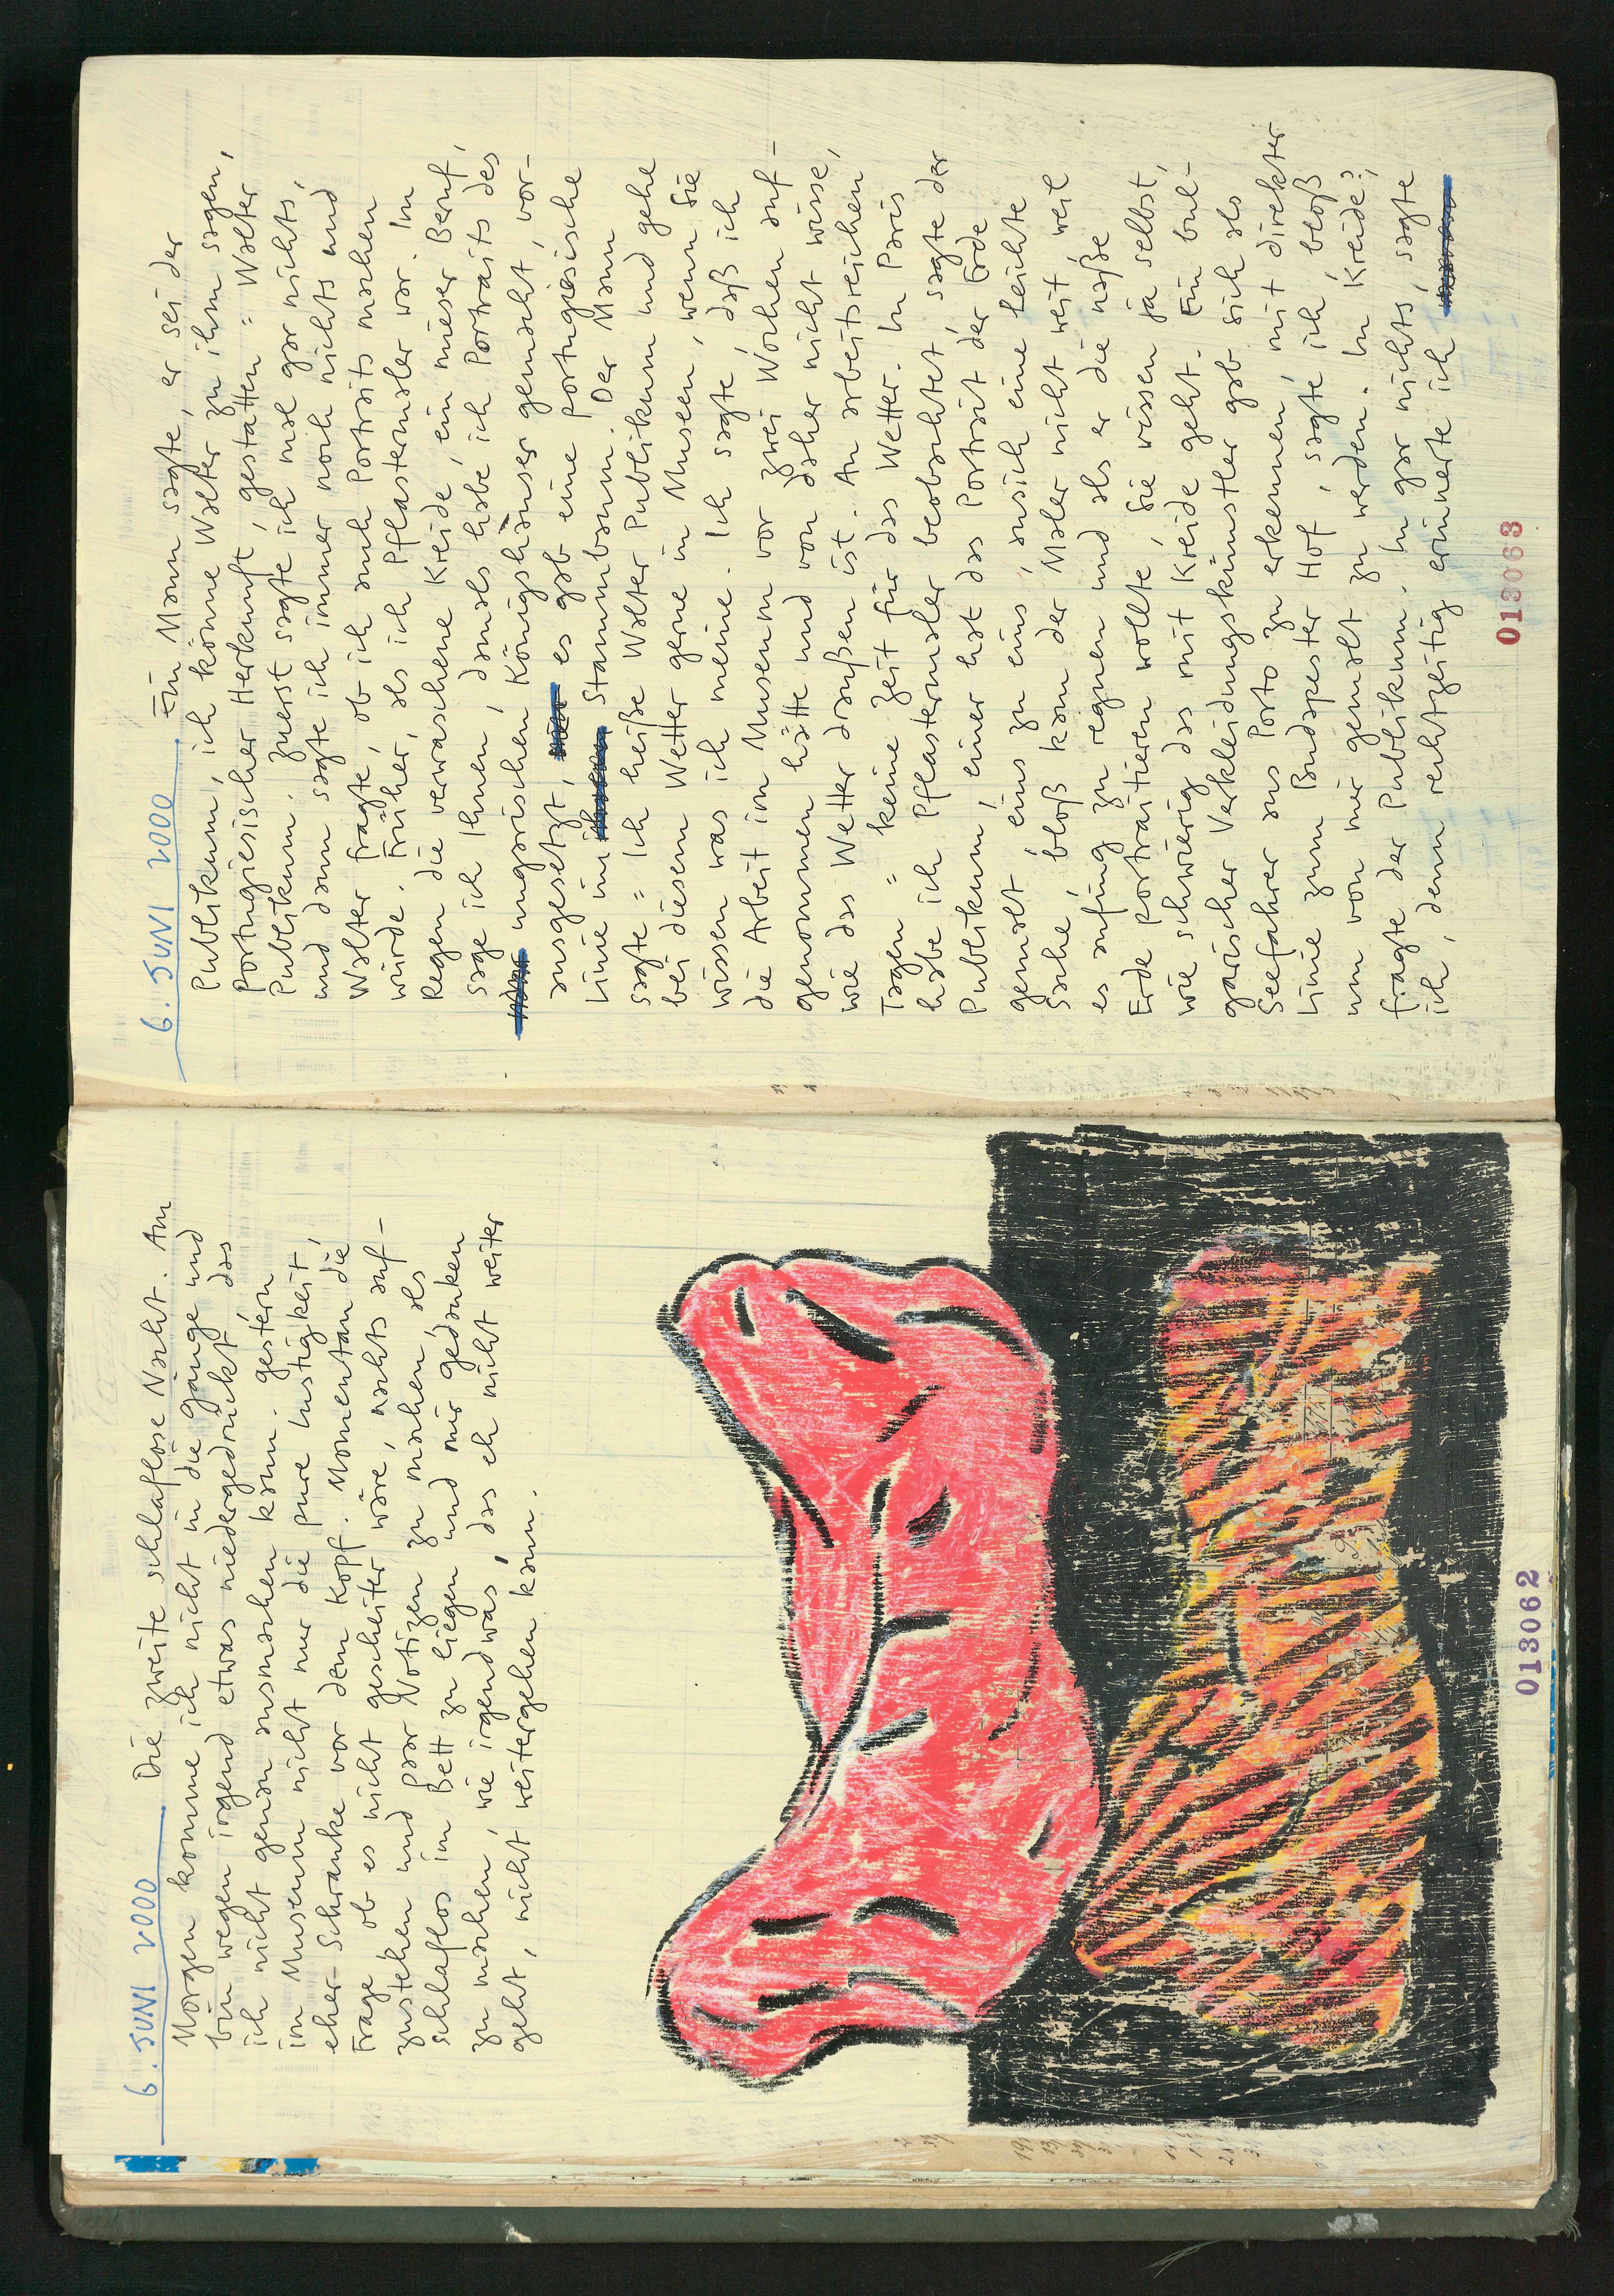 6. JUNI 2000 Die zweite schlaflose Nacht. Am
Morgen komme ich nicht in die gänge und
bin wegen irgend etwas niedergedrückt das
ich nicht genau ausmachen kann. gestern
im Museum nicht nur die pure Lustigkeit,
eher Schranke vor dem Kopf. Momentan die
Frage ob es nicht gescheiter wäre, nachts auf-
zustehen und paar Notizen zu machen als
schlaflos im Bett zu liegen und mir gedanken
zu machen, wie irgendwas, das eh nicht weiter
geht, nicht weitergehen kann.
013062
6. JUNI 2000 Ein Mann sagte, er sei der
Publikum, ich könne Walter zu ihm sagen,
Portugiesischer Herkunft, gestatten = Walter
Publikum. Zuerst sagte ich mal gar nichts,
und dann sagte ich immer noch nichts und
Walter fragte, ob ich auch Portraits machen
würde. Früher, als ich Pflastermaler war. Im
Regen die verwaschene Kreide, ein mieser Beruf,
sage ich Ihnen, damals habe ich Portraits des
ungarischen Königshauses gemacht, vor-
ausgesetzt, es gab eine portugiesische
Linie im Stammbaum. Der Mann
sagte = Ich heiße Walter Publikum und gehe
bei diesem Wetter gerne in Museen, wenn Sie
wissen was ich meine. Ich sagte, daß ich
die Arbeit im Museum vor zwei Wochen auf-
genommen hätte und von daher nicht wisse,
wie das Wetter draußen ist. An arbeitsreichen
Tagen = keine Zeit für das Wetter. In Paris
habe ich Pflastermaler beobachtet, sagte der
Publikum, einer hat das Portrait der Erde
gemalt, eins zu eins, ansich eine leichte
Sache, bloß kam der Maler nicht weit, weil
es anfing zu regnen und als er die naße
Erde portraitieren wollte, Sie wissen ja selbst,
wie schwierig das mit Kreide geht. Ein bul-
garischer Verkleidungskünstler gab sich als
Seefahrer aus Porto zu erkennen, mit direkter
Linie zum Budapester Hof, sagte ich, bloß
um von mir gemalt zu werden. In Kreide?,
fragte der Publikum. In gar nichts, sagte
ich, denn rechtzeitig erinnerte ich
013063